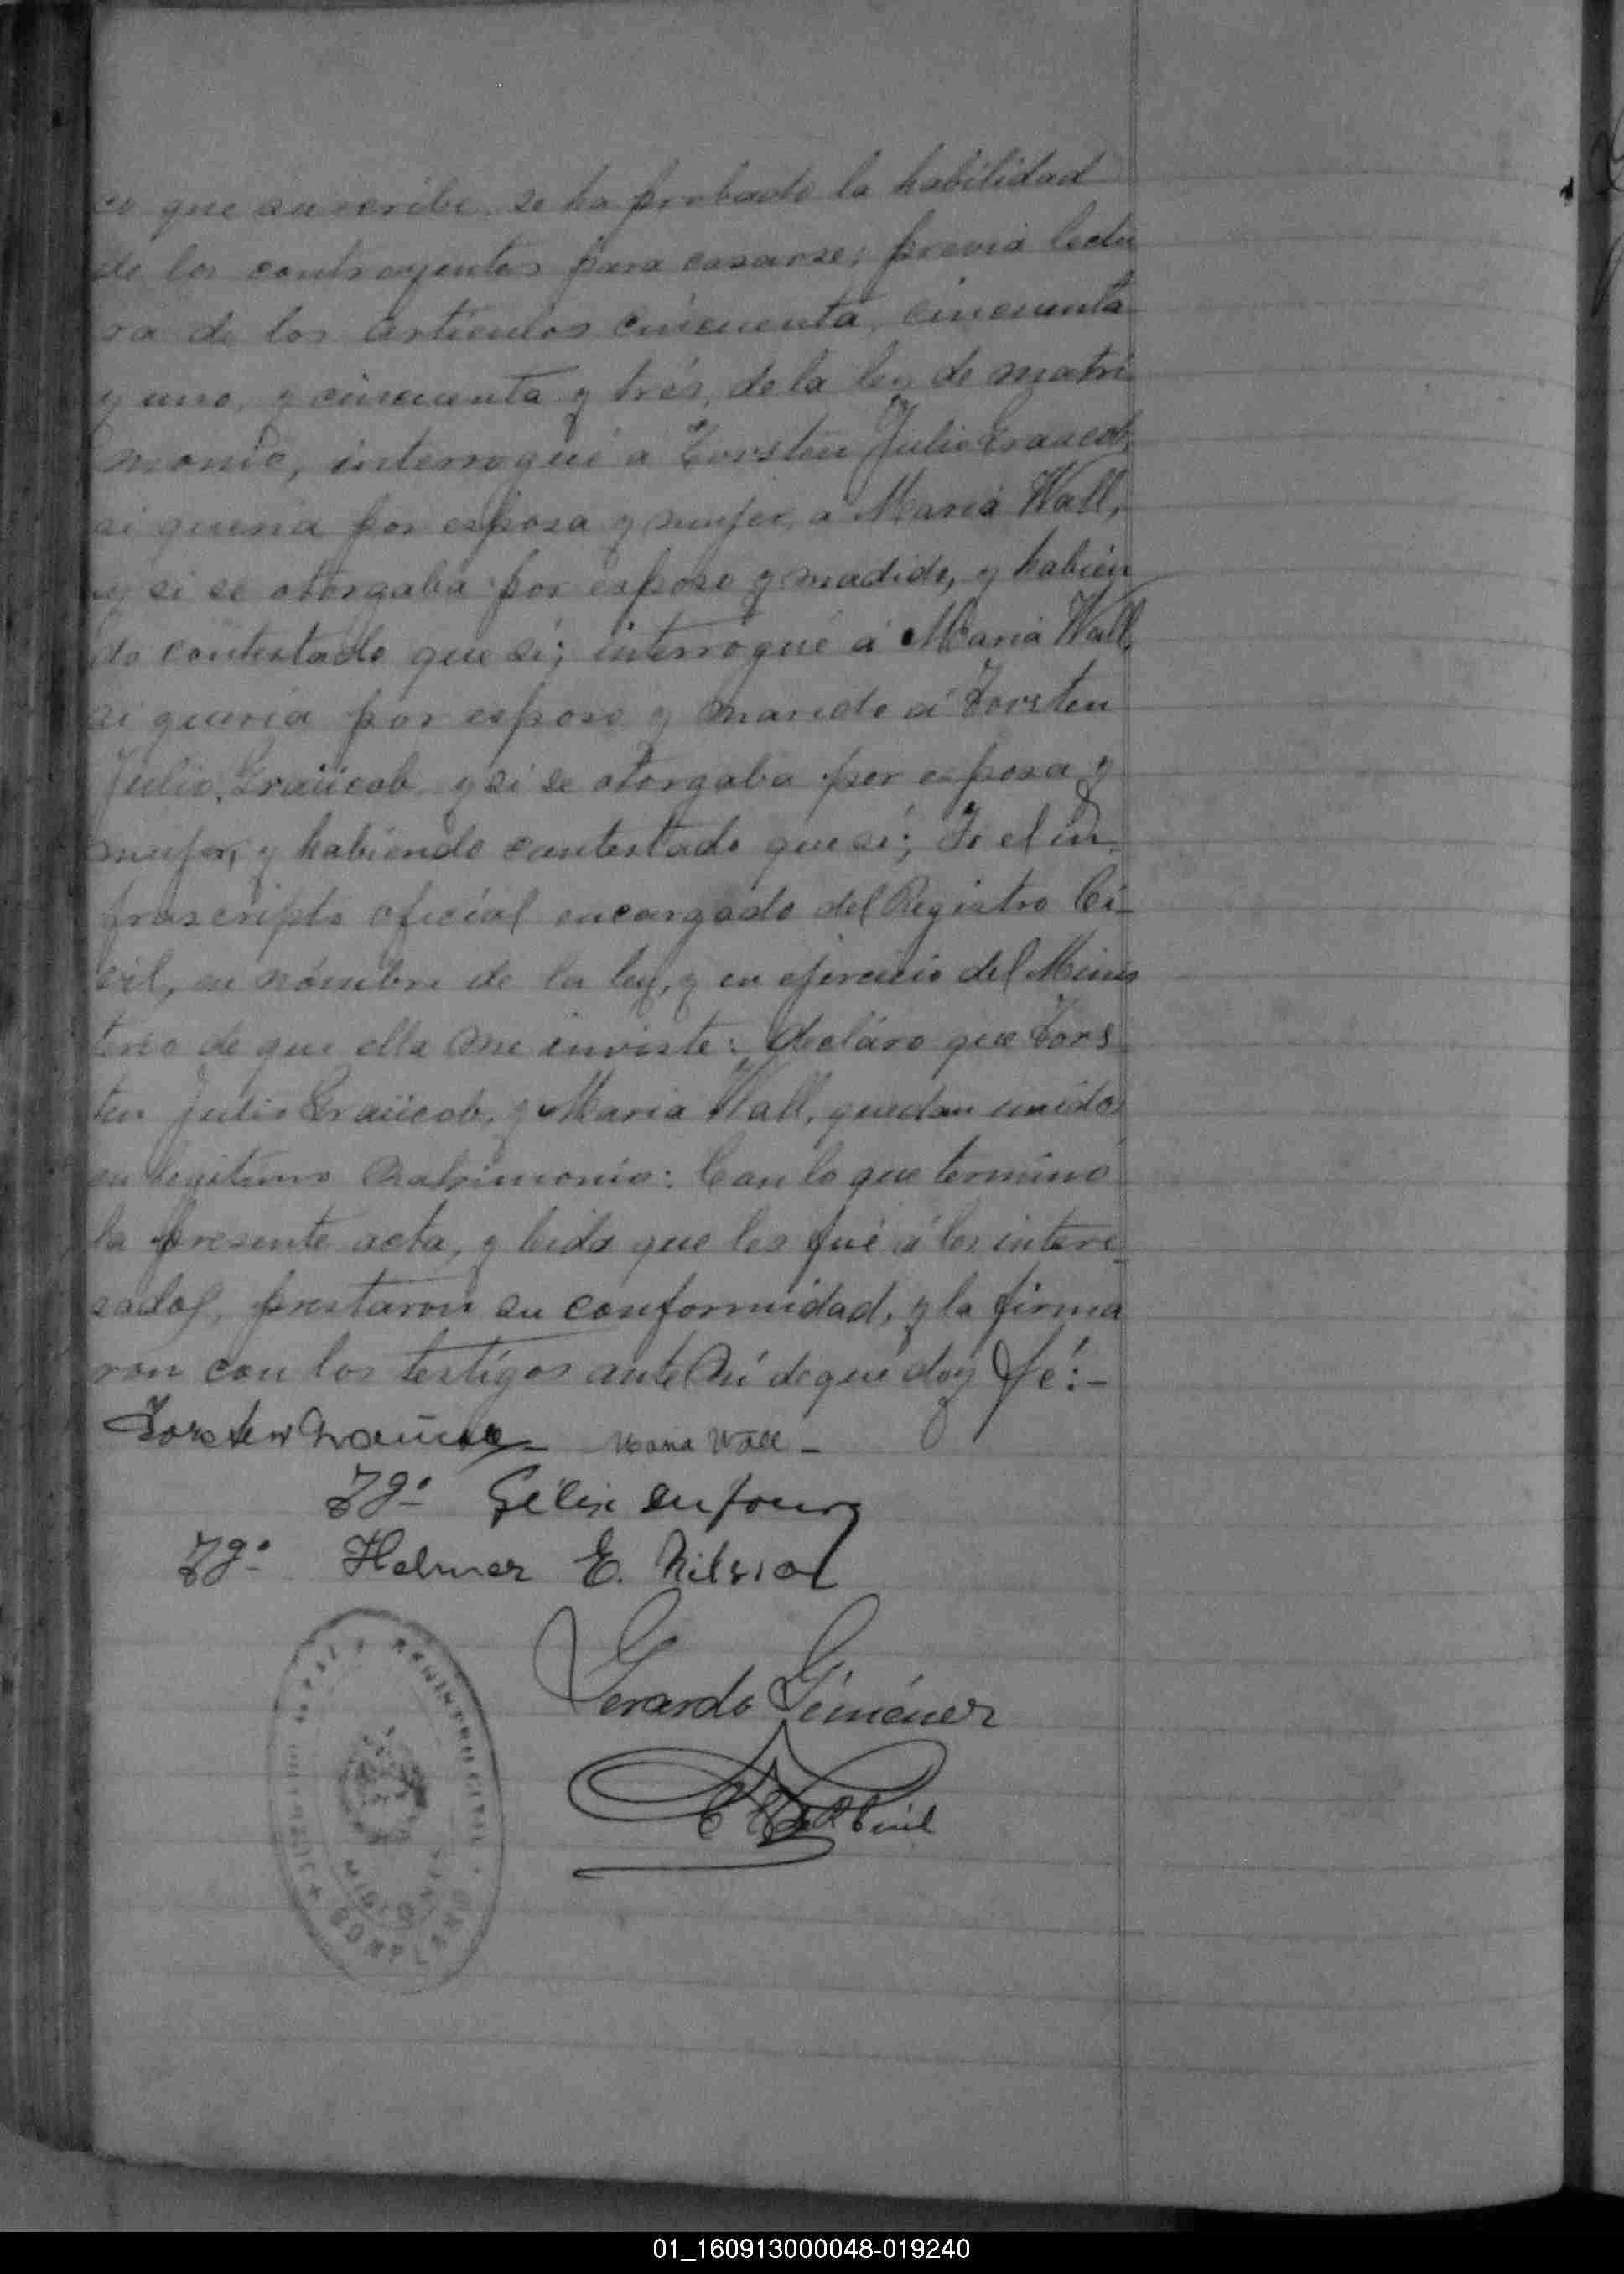 co que suscribe, se ha probado la habilidad
de los contrayentes para casarse; previa lectu
ra de los artículos cincuenta, cincuenta
y uno, y cincuenta y trés, de la ley de matri
monio, interrogué a Torsten Julio Graücob,
si queria por esposa y mujer, a Maria Wall,
y si se otorgaba por esposo y madido, y habien
do contestado que si; interrogué á Maria Wall,
si queria por esposo y marido á Torsten
Julio, Graücob, y si se otorgaba por esposa y
mujer, y habiendo contestado que sí; Yo el in
frascripto oficial encargado del Registro Ci-
vil, en nómbre de la ley, y en ejercicio del Minis
terio de que ella me inviste: declaro que Tors
ten Julio Graücob, y Maria Wall, quedan unidos
en legitimo Matrimonio: Con lo que terminó
la presente acta, y leida que les fué á los intere
sados, prestaron su conformidad, y la firma
ron con los testigos ante Mí de que doy fé:-
Torsten Graücob - Maria Wall -
Tgo Félix Dufour
Tgo Helmer E. Nilsson
Gerardo Giménez
Civil
REGISTRO CIVIL
MISIONES
BOMPLAND
01_160913000048-019240